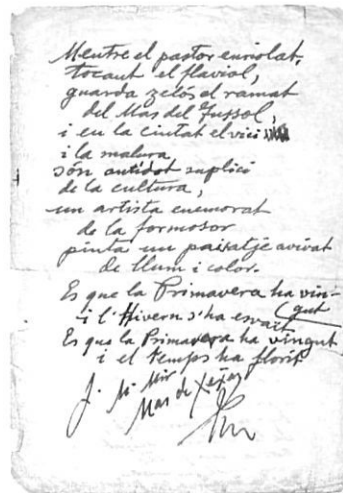 Mentre el pastor enriolat,
tocant el flaviol,
guarda zelós el ramat
del Mas del Fussol,
i en la ciutat el vici
i la malura
són antidot suplici
de la cultura,
un artista enemorat
de la formosor
pinta un paisatje avivat
de llum i color.
Es que la Primavera ha vin-
gut
i l'Hivern s'ha esvait
Es que la Primavera ha vingut
i el temps ha florit
J. M. Mir
Mas de Xexas